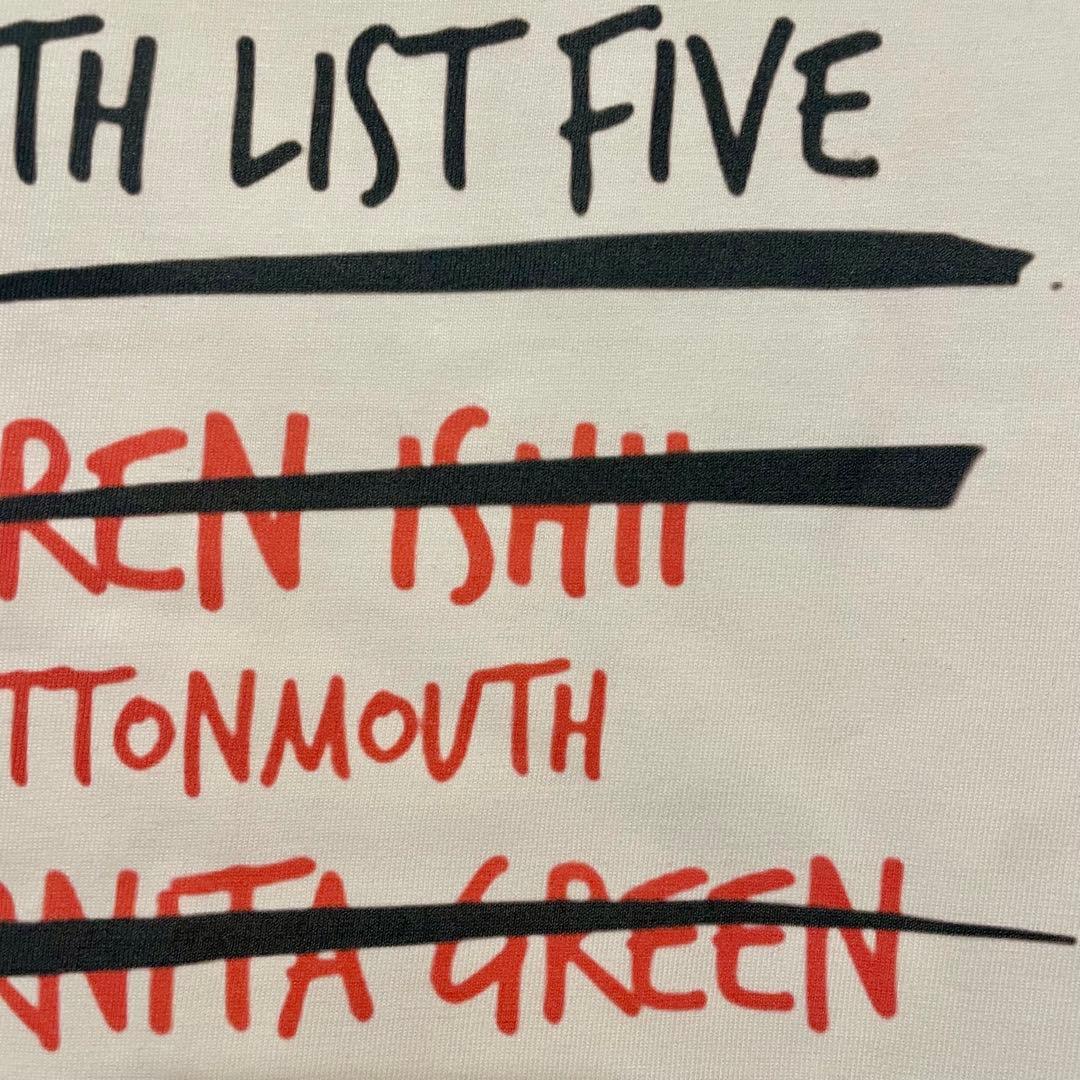 TH LIST FIVE
REN ISHII
TTONMOUTH
NITA GREEN